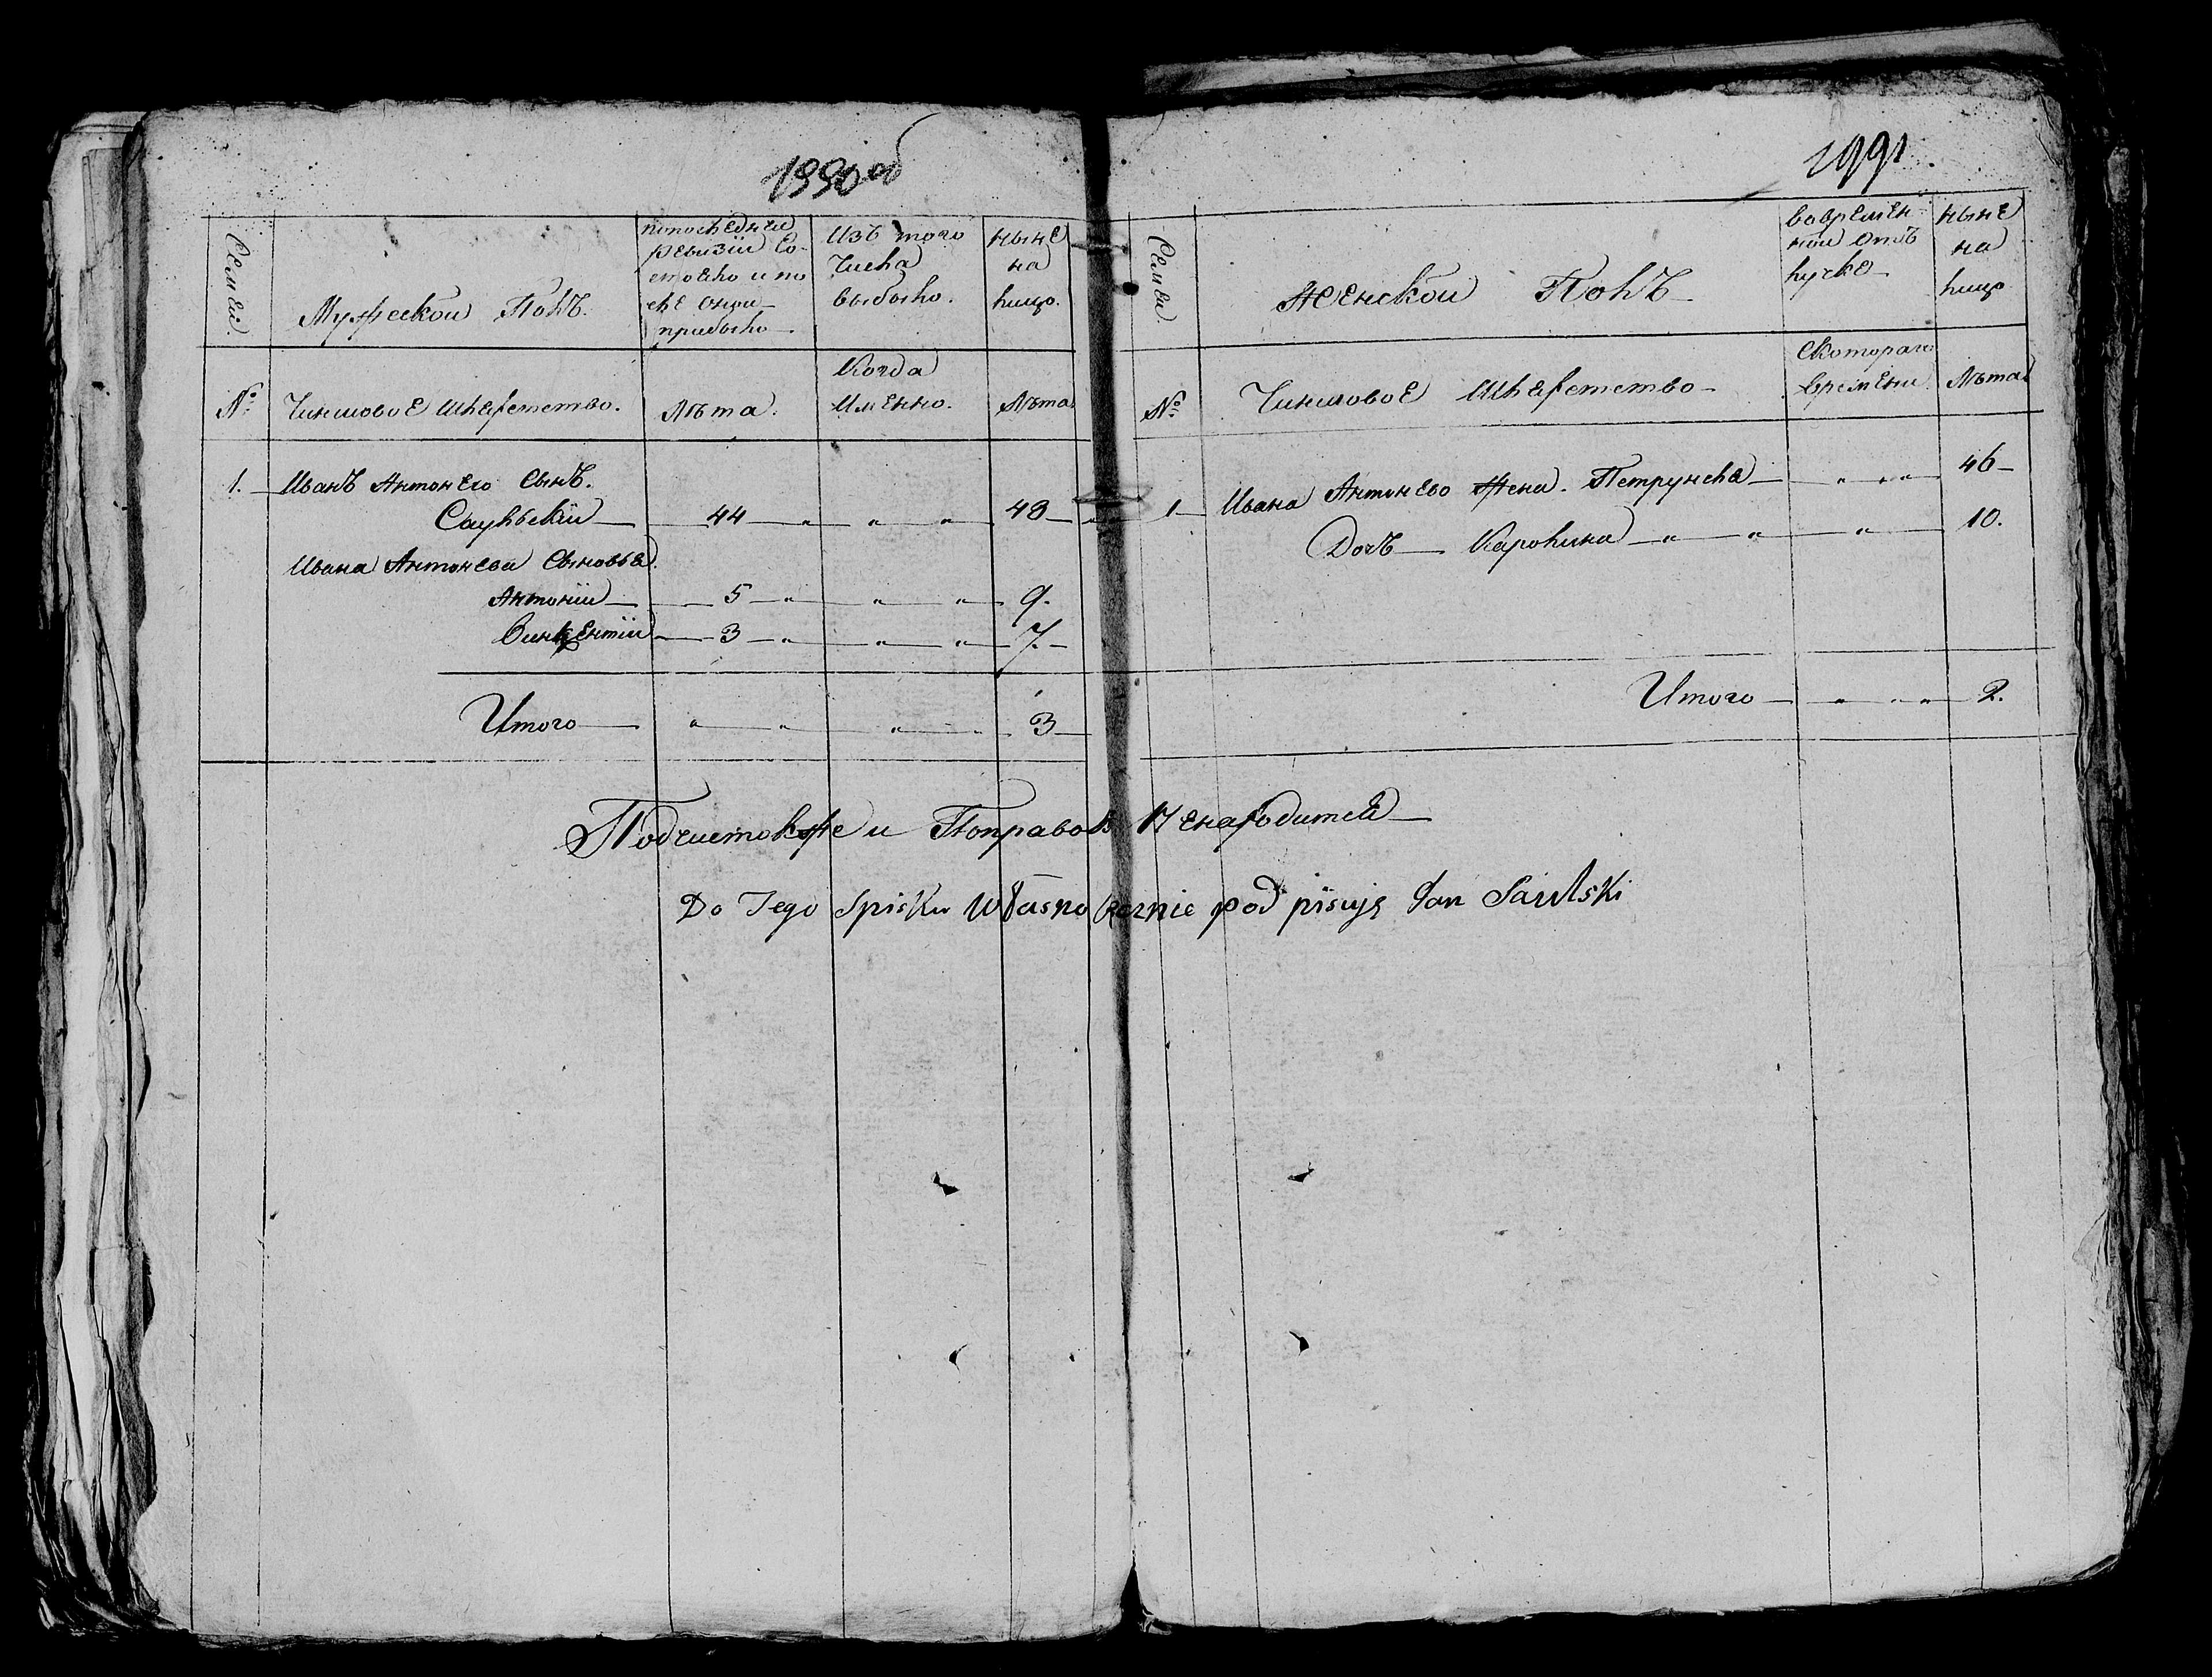 1990 об
Семьи.
Мужескои Полъ.
по последнеи
ревизіи со-
стояло и по
сле онои
прибыло.
Изъ того
числа
выбыло.
ныне
на
лицо.
№:
Чиншовое Шляхетство.
Лѣта.
Когда
именно.
Лѣта
1. Иванъ Антонего Сынъ.
Саульскіи 44 " " " 48
Ивана Антонева Сыновья.
Антоніи 5 " " " 9.
Винкентіи 3 " " " 7.
Итого " " " 3
1991.
Семьи.
Женскои Полъ
во времен-
нои отъ
лучке
ныне
на
лицо
№:
Чиншовое Шляхетство
с котораго
времени.
Лѣта
1 Ивана Антонево Жена. Петрунеля " " " 46
Дочъ Каролина " " " 10.
Итого " " " 2.
Подчистокже и Поправок Ненаходится
Do Tego Spisku Własno Ręcznie pod pisuję Jan Saulski